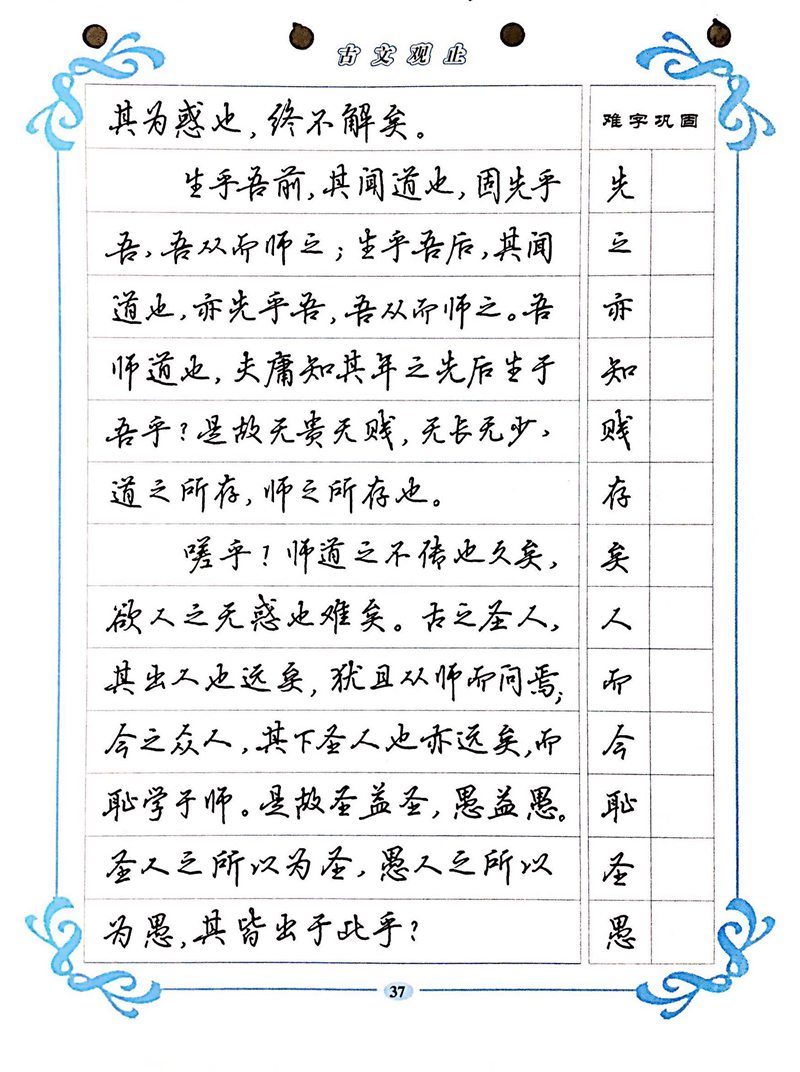 古文观止
其为惑也，终不解矣。
难字巩固
生乎吾前，其闻道也，固先乎
先
吾，吾从而师之；生乎吾后，其闻
之
道也，亦先乎吾，吾从而师之。吾
亦
师道也，夫庸知其年之先后生于
知
吾乎？是故无贵无贱，无长无少，
贱
道之所存，师之所存也。
存
嗟乎？师道之不传也久矣，
矣
欲人之无惑也难矣。古之圣人，
人
其出人也远矣，犹且从师而问焉；
而
今之众人，其下圣人也亦远矣，而
今
耻学于师。是故圣益圣，愚益愚。
耻
圣人之所以为圣，愚人之所以
圣
为愚，其皆出于此乎？
愚
37